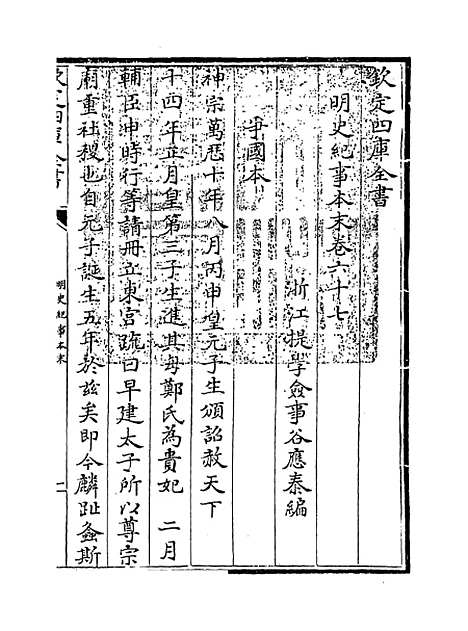 欽定四庫全書
明史紀事本末卷六十七
浙江提學僉事谷應泰編
爭國本
神宗萬厯十年八月丙申皇元子生頒詔赦天下
十四年正月皇第三子生進其母鄭氏為貴妃　二月
輔臣申時行等請冊立東宮疏曰早建太子所以尊宗
廟重社稷也自元子誕生五年於兹矣即今麟趾螽斯
欽定四庫全書
明史紀事本末